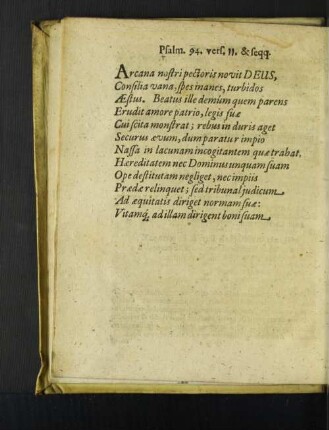 Psalm. 94. vers. 11. & seqq.
Arcana nostri pectoris novit DEUS,
Consilia vana, spes inanes, turbidos
Æstus. Beatus ille demum quem parens
Erudit amore patrio, legis suæ
Cui scita monstrat; rebus in duris aget
Securus ævum, dum paratur impio
Nassa in lacunam incogitantem quæ trahat.
Hæreditatem nec Dominus unquam suam
Ope destitutam negliget, nec impiis
Prædæ relinquet; sed tribunal judicum
Ad æquitatis diriget normam suæ:
Vitamq́; ad illam dirigent boni suam.